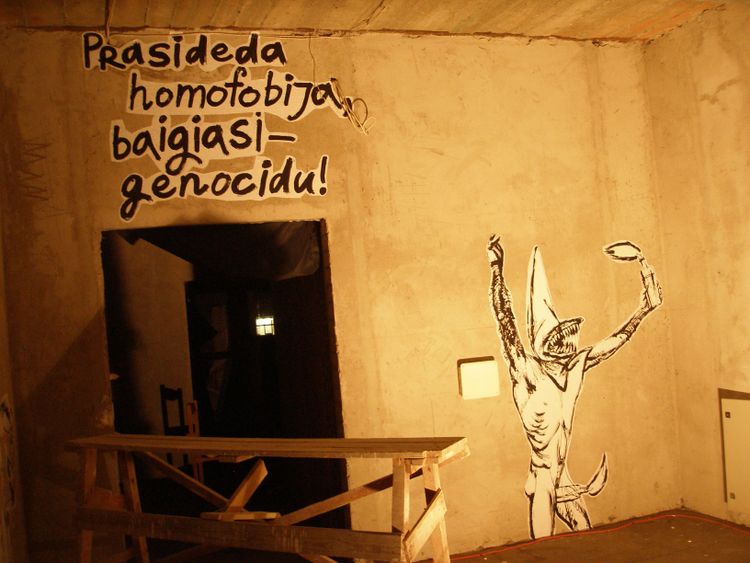 Prasideda
homofobija,
baigiasi–
genocidu!